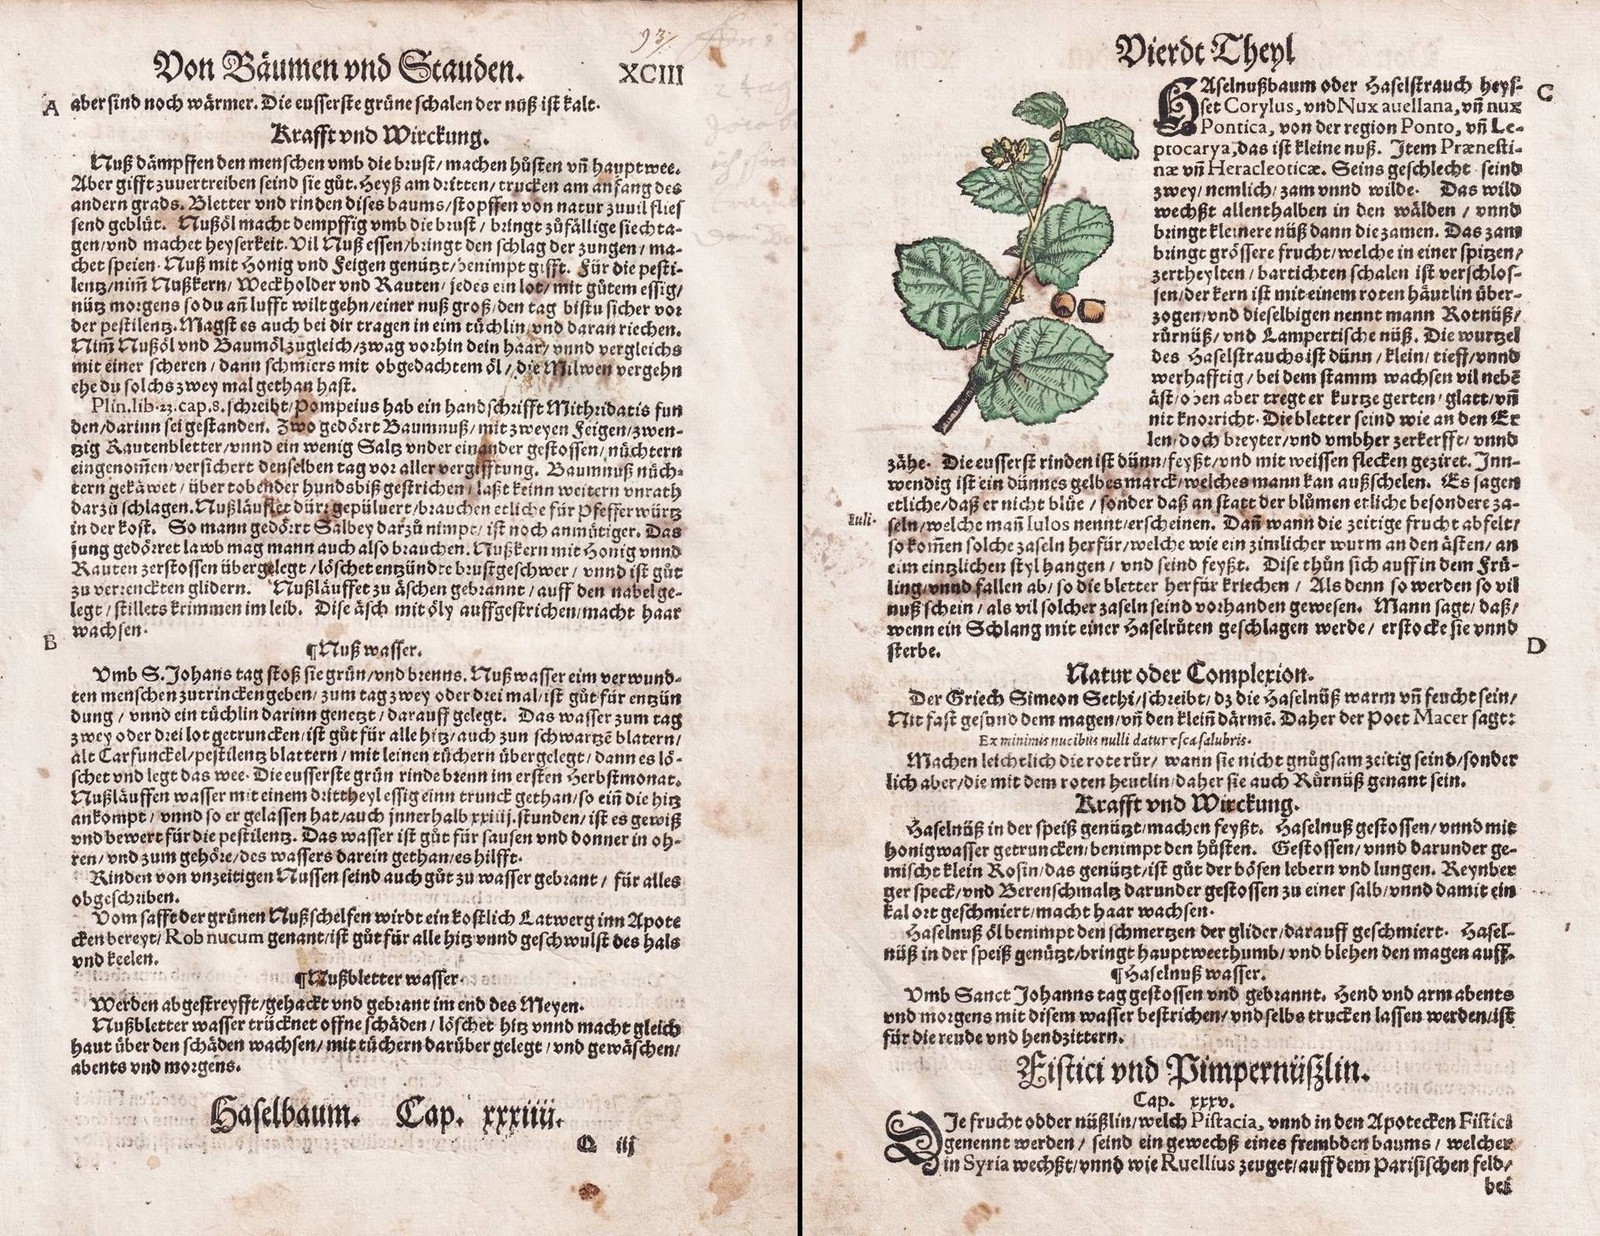 93/
Von Bäumen vnd Stauden.
XCIII
A
aber sind noch wärmer. Die eusserste grüne schalen der nüß ist kalt.
Krafft vnd Wirckung.
Nuß dämpffen den menschen vmb die brust/ machen hůsten vñ hauptwee.
Aber gifft zuuertreiben seind sie gůt. Heyß am dritten/ trucken am anfang des
andern grads. Bletter vnd rinden dises baums/stopffen von natur zuuil flies
send geblüt. Nußöl macht dempffig vmb die brust/ bringt zůfällige siechta-
gen/vnd machet heyserkeit. Vil Nuß essen/bringt den schlag der zungen/ ma-
chet speien. Nuß mit Honig vnd Feigen genützt/benimpt gifft. Für die pesti-
lentz/nim̃ Nußkern/ Weckholder vnd Rauten/ jedes ein lot/ mit gůtem essig/
nütz morgens so du an̄ lufft wilt gehn/einer nuß groß/den tag bistu sicher vor
der pestilentz. Magst es auch bei dir tragen in eim tüchlin/vnd daran riechen.
Nim̃ Nußöl vnd Baumöl zugleich/zwag vorhin dein haar/ vnnd vergleichs
mit einer scheren/ dann schmiers mit obgedachtem öl/ die Milwen vergehn
ehe du solchs zwey mal gethan hast.
Plin.lib.23.cap.8.schreibt/Pompeius hab ein handschrifft Mithridatis fun
den/darinn sei gestanden. Zwo gedörrt Baumnuß/mit zweyen Feigen/zwen-
tzig Rautenbletter/vnnd ein wenig Saltz vnder einander gestossen/nüchtern
eingenom̃en/versichert denselben tag vor aller vergifftung. Baumnuß nüch-
tern gekäwet/ über tobender hundsbiß gestrichen/ laßt keinn weitern vnrath
darzů schlagen. Nußläuflet dürr gepüluert/brauchen etliche für Pfefferwürtz
in der kost. So mann gedörrt Salbey darzů nimpt/ ist noch anmütiger. Das
jung gedörret lawb mag mann auch also brauchen. Nußkern mit Honig vnnd
Rauten zerstossen übergelegt/löschet entzündte brustgeschwer/ vnnd ist gůt
zu verrenckten glidern. Nußläuffet zu äschen gebrannt/ auff den nabel ge-
legt/ stillets krimmen im leib. Dise äsch mit öly auffgestrichen/macht haar
wachsen.
B
¶Nuß wasser.
Vmb S. Johans tag stoß sie grün/vnd brenns. Nuß wasser eim verwund-
ten menschen zutrincken geben/ zum tag zwey oder drei mal/ist gůt für entzün
dung/ vnnd ein tüchlin darinn genetzt/ darauff gelegt. Das wasser zum tag
zwey oder drei lot getruncken/ist gůt für alle hitz/auch zun schwartzẽ blatern/
alt Carfunckel/pestilentz blattern/ mit leinen tüchern übergelegt/dann es lö-
schet vnd legt das wee. Die eusserste grün rinde brenn im ersten Herbstmonat.
Nußläuffen wasser mit einem drittheyl essig einn trunck gethan/so ein̄ die hitz
ankompt/ vnnd so er gelassen hat/auch jnnerhalb xxiiij.stunden/ist es gewiß
vnd bewert für die pestilentz. Das wasser ist gůt für sausen vnd donner in oh-
ren/vnd zum gehöre/des wassers darein gethan/es hilfft.
Rinden von vnzeitigen Nussen seind auch gůt zu wasser gebrant/ für alles
obgeschriben.
Vom safft der grünen Nußschelfen wirdt ein kostlich Latwerg inn Apote
cken bereyt/ Rob nucum genant/ist gůt für alle hitz vnnd geschwulst des hals
vnd keelen.
¶Nußbletter wasser.
Werden abgestreyfft/gehackt vnd gebrant im end des Meyen.
Nußbletter wasser trücknet offne schäden/ löschet hitz vnnd macht gleich
haut über den schäden wachsen/ mit tüchern darüber gelegt/vnd gewäschen/
abents vnd morgens.
Haselbaum. Cap. xxxiiii.
Q iij
Vierdt Theyl
C
HAselnußbaum oder Haselstrauch heys-
set Corylus, vnd Nux auellana, vñ nux
Pontica, von der region Ponto, vñ Le-
ptocarya, das ist kleine nuß. Item Prænesti-
næ vñ Heracleoticæ. Seins geschlecht seind
zwey/ nemlich/ zam vnnd wilde. Das wild
wechßt allenthalben in den wälden/ vnnd
bringt kleinere nüß dann die zamen. Das zam
bringt grössere frucht/welche in einer spitzen/
zertheylten/ bartichten schalen ist verschlos-
sen/der kern ist mit einem roten häutlin über-
zogen/vnd dieselbigen nennt mann Rotnüß/
růrnüß/vnd Lampertische nüß. Die wurtzel
des Haselstrauchs ist dünn/klein/tieff/vnnd
werhafftig/ bei dem stamm wachsen vil nebẽ
äst/oben aber tregt er kurtze gerten/ glatt/vñ
nit knorricht. Die bletter seind wie an den Er
len/doch breyter/vnd vmbher zerkerfft/ vnnd
zähe. Die eusserst rinden ist dünn/feyßt/vnd mit weissen flecken geziret. Inn-
wendig ist ein dünnes gelbes marck/welches mann kan außschelen. Es sagen
etliche/daß er nicht blüe/ sonder daß an statt der blůmen etliche besondere za-
Iuli.
seln/welche man̄ Iulos nennt/erscheinen. Dan̄ wann die zeitige frucht abfelt/
so kom̃en solche zaseln herfür/welche wie ein zimlicher wurm an den ästen/an
eim eintzlichen styl hangen/ vnd seind feyßt. Dise thůn sich auff in dem Frü-
ling/vnnd fallen ab/ so die bletter herfür kriechen/ Als denn so werden so vil
nuß schein/ als vil solcher zaseln seind vorhanden gewesen. Mann sagt/ daß/
wenn ein Schlang mit einer Haselrůten geschlagen werde/ erstocke sie vnnd
sterbe.
D
Natur oder Complexion.
Der Griech Simeon Sethi/schreibt/ dz die Haselnüß warm vñ feucht sein/
Nit fast gesund dem magen/vñ den klein̄ därmẽ. Daher der Poet Macer sagt:
Ex minimis nucibus nulli datur esca salubris.
Machen leichtlich die rote růr/ wann sie nicht gnůgsam zeitig seind/sonder
lich aber/die mit dem roten heutlin/daher sie auch Růrnüß genant sein.
Krafft vnd Wirckung.
Haselnüß in der speiß genützt/machen feyßt. Haselnuß gestossen/vnnd mit
honigwasser getruncken/benimpt den hůsten. Gestossen/vnnd darunder ge-
mischt klein Rosin/das genützt/ist gůt der bösen lebern vnd lungen. Reynber
ger speck/vnd Berenschmaltz darunder gestossen zu einer salb/vnnd damit ein
kal ort geschmiert/macht haar wachsen.
Haselnuß öl benimpt den schmertzen der glider/darauff geschmiert. Hasel-
nüß in der speiß genützt/bringt hauptwee thumb/ vnd blehen den magen auff.
¶Haselnuß wasser.
Vmb Sanct Johanns tag gestossen vnd gebrannt. Hend vnd arm abents
vnd morgens mit disem wasser bestrichen/ vnd selbs trucken lassen werden/ist
für die reude vnd hendzittern.
Fistici vnd Pimpernüßlin.
Cap. xxxv.
DJe frucht odder nüßlin/welch Pistacia, vnnd in den Apotecken Fistici
genennt werden/ seind ein gewechß eines frembden baums/ welcher
in Syria wechßt/vnnd wie Ruellius zeuget/auff dem Parisischen feld/
bei